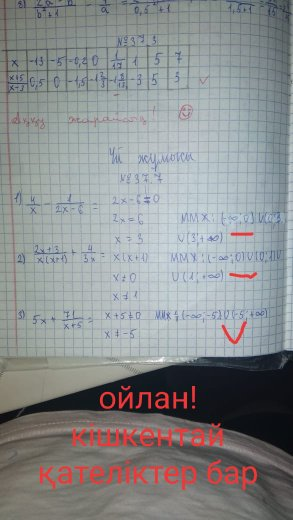 №373
x | -13 | -5 | -0,2 | 0 | 1/17 | 1 | 5 | 7
(x+5)/(x-3) | 0,5 | 0 | -1,5 | -1 2/3 | -1 | -3 | 5 | 3
жарайсың!
Үй жұмысы
№377
1) 4/x - 1/(2x-6) = 2x-6≠0
2x=6 ММЖ: (-∞;0)∪(0;3)
x=3 ∪(3;+∞)
2) (2x+3)/(x(x+1)) + 4/3x = x(x+1) ММЖ: (-∞;0)∪(0;1)∪
x≠0 ∪(1;+∞)
x≠1
3) 5x + 71/(x+5) = x+5≠0 ММЖ: (-∞;-5)∪(-5;+∞)
x≠-5
ойлан!
кішкентай
қателіктер бар